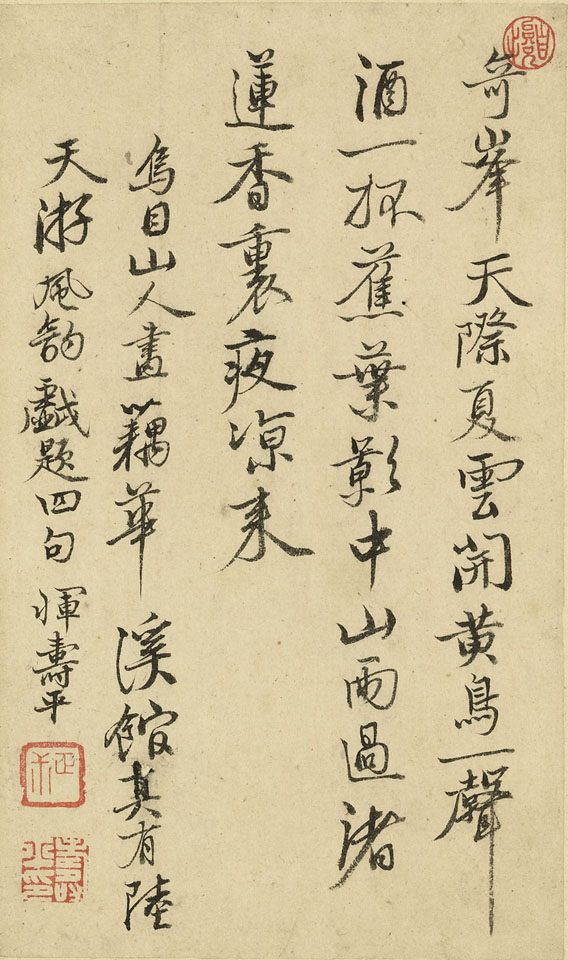 奇峯天際夏雲開黄鳥一聲
酒一杯蕉葉影中山雨過渚
蓮香裏夜涼来
烏目山人畫藕華溪館真有陸
天游風韵戲題四句惲壽平